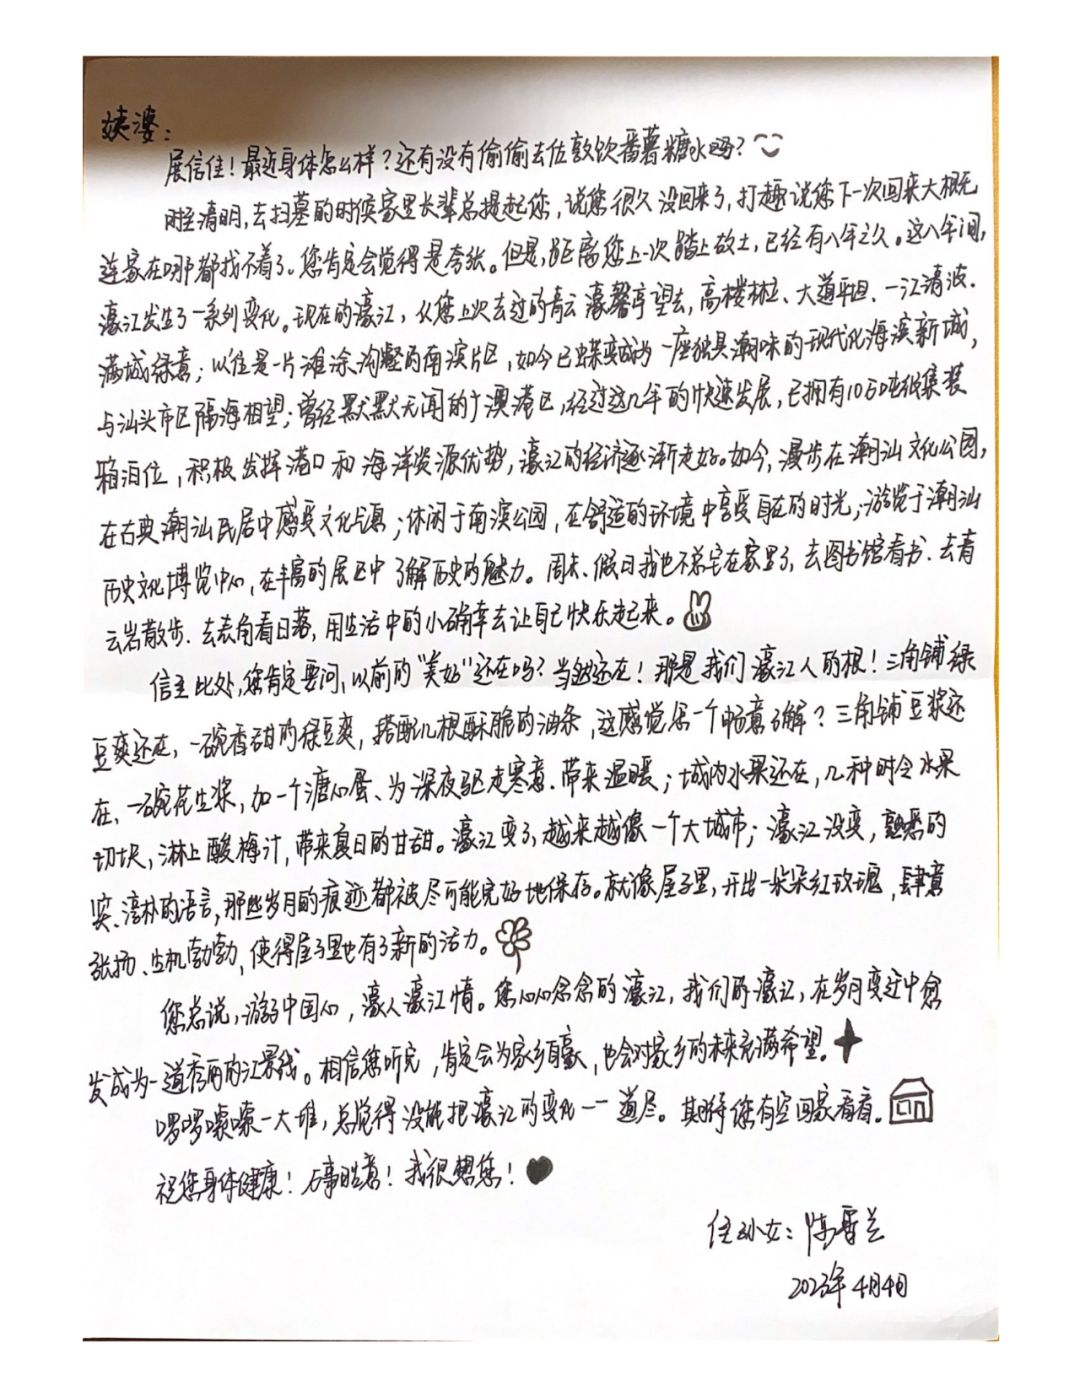 姨婆：
展信佳！最近身体怎么样？还有没有偷偷去位敦饮番薯糖水吗？
时至清明，去扫墓的时候家里长辈总提起您，说您很久没回来了，打趣说您下一次回来大概无
连家在哪都找不着了。您肯定会觉得是夸张。但是，距离您上一次踏上故土，已经有八年之久。这八年间，
濠江发生了一系列变化。现在的濠江，从您上次去过的青云濠馨亭望去，高楼林立、大道平坦、一江清波、
满城绿意；以往是一片滩涂沟壑的南滨片区，如今已蝶变成为一座独具潮味的现代化海滨新城，
与汕头市区隔海相望；曾经默默无闻的广澳港区，经过这几年的快速发展，已拥有10万吨级集装
箱泊位，积极发挥港口和海洋资源优势，濠江的经济逐渐走好。如今，漫步在潮汕文化公园，
在古典潮汕民居中感受文化气息；休闲于南滨公园，在舒适的环境中享受自在的时光；游览于潮汕
历史文化博览中心，在丰富的展区中了解历史的魅力。周末、假日我也不总宅在家里了，去图书馆看书、去青
云岩散步、去表角看日落，用生活中的小确幸去让自己快乐起来。
信至此处，您肯定要问，以前的“美好”还在吗？当然还在！那是我们濠江人的根！三角铺绿
豆爽还在，一碗香甜的绿豆爽，搭配几根酥脆的油条，这感觉怎一个畅意了解？三角铺豆浆还
在，一碗花生浆，加一个溏心蛋、为深夜驱走寒意、带来温暖；城内水果还在，几种时令水果
切块，淋上酸梅汁，带来夏日的甘甜。濠江变了，越来越像一个大城市；濠江没变，熟悉的
淳朴的语言，那些岁月的痕迹都被尽可能完好地保存。就像厝子里，开出一朵朵红玫瑰，肆意
张扬、生机勃勃，使得厝子里也有了新的活力。
您总说，游子中国心，濠人濠江情。您心心念念的濠江，我们的濠江，在岁月变迁中愈
发成为一道秀丽的江景线。相信您听完，肯定会为家乡自豪，也会对家乡的未来充满希望。
啰啰嗦嗦一大堆，总觉得没能把濠江的变化一一道尽。期盼您有空回家看看。
祝您身体健康！万事胜意！我很想您！
侄孙女：陈雪兰
2023年4月4日